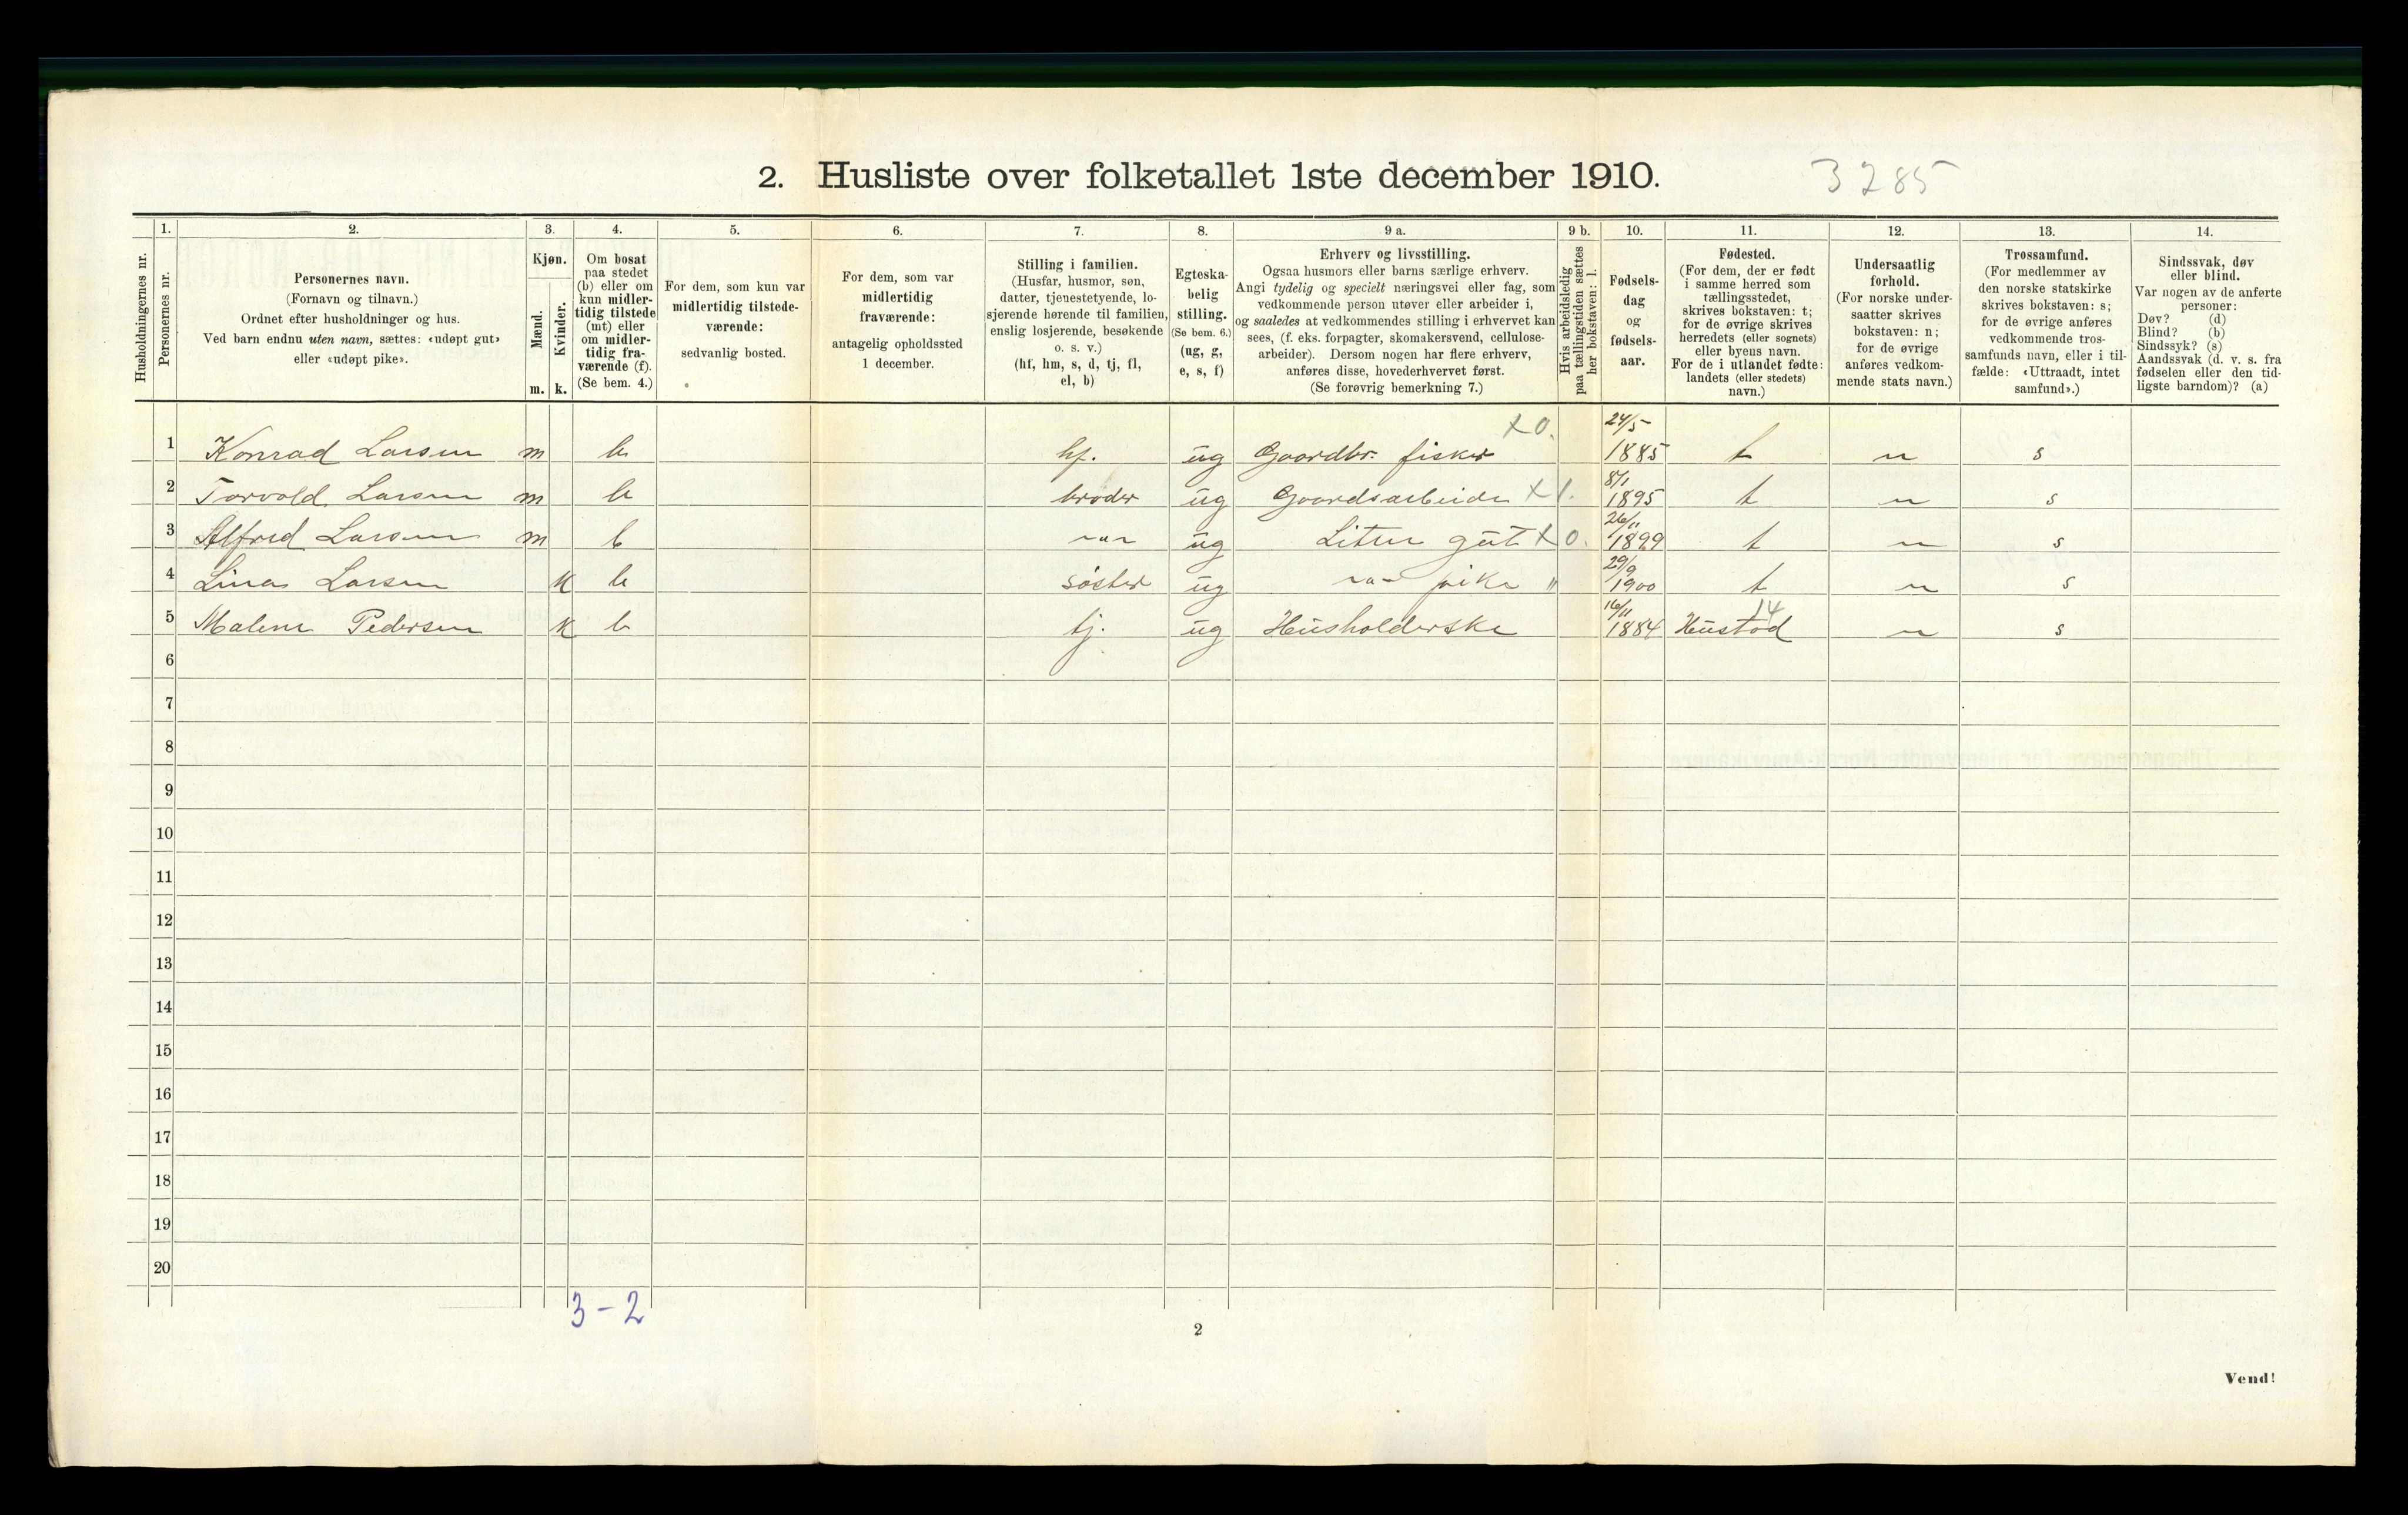 2. Husliste over folketallet 1ste december 1910.
3285
Husholdningernes nr.
1.
Personernes nr.
2.
Personernes navn.
(Fornavn og tilnavn.)
Ordnet efter husholdninger og hus.
Ved barn endnu uten navn, sættes: «udøpt gut»
eller «udøpt pike».
3.
Kjøn.
Mænd.
m.
Kvinder.
k.
4.
Om bosat
paa stedet
(b) eller om
kun midler-
tidig tilstede
(mt) eller
om midler-
tidig fra-
værende (f).
(Se bem. 4.)
5.
For dem, som kun var
midlertidig tilstede-
værende:
sedvanlig bosted.
6.
For dem, som var
midlertidig
fraværende:
antagelig opholdssted
1 december.
7.
Stilling i familien.
(Husfar, husmor, søn,
datter, tjenestetyende, lo-
sjerende hørende til familien,
enslig losjerende, besøkende
o. s. v.)
(hf, hm, s, d, tj, fl,
el, b)
8.
Egteska-
belig
stilling.
(Se bem. 6.)
(ug, g,
e, s, f)
9 a.
Erhverv og livsstilling.
Ogsaa husmors eller barns særlige erhverv.
Angi tydelig og specielt næringsvei eller fag, som
vedkommende person utøver eller arbeider i,
og saaledes at vedkommendes stilling i erhvervet kan
sees, (f. eks. forpagter, skomakersvend, cellulose-
arbeider). Dersom nogen har flere erhverv,
anføres disse, hovederhvervet først.
(Se forøvrig bemerkning 7.)
9 b.
Hvis arbeidsledig
paa tællingstiden sættes
her bokstaven: l.
10.
Fødsels-
dag
og
fødsels-
aar.
11.
Fødested.
(For dem, der er født
i samme herred som
tællingsstedet,
skrives bokstaven: t;
for de øvrige skrives
herredets (eller sognets)
eller byens navn.
For de i utlandet fødte:
landets (eller stedets)
navn.)
12.
Undersaatlig
forhold.
(For norske under-
saatter skrives
bokstaven: n;
for de øvrige
anføres vedkom-
mende stats navn.)
13.
Trossamfund.
(For medlemmer av
den norske statskirke
skrives bokstaven: s;
for de øvrige anføres
vedkommende tros-
samfunds navn, eller i til-
fælde: «Uttraadt, intet
samfund».)
14.
Sindssvak, døv
eller blind.
Var nogen av de anførte
personer:
Døv? (d)
Blind? (b)
Sindssyk? (s)
Aandssvak (d. v. s. fra
fødselen eller den tid-
ligste barndom)? (a)
1 Konrad Larsen m b hf. ug Gaardbr. fisker x0. 24/5 1885 t n s
2 Torvald Larsen m b broder ug Gaardsarbeider x1. 8/1 1895 t n s
3 Alfred Larsen m b -"- ug Liten gut x0. 26/11 1899 t n s
4 Lina Larsen k b søster ug -"- pike " 29/9 1900 t n s
5 Malene Pedersen k b tj. ug Husholderske 16/11 1884 Hustad 14 n s
6
7
8
9
10
11
12
13
14
15
16
17
18
19
20
3-2
2
Vend!